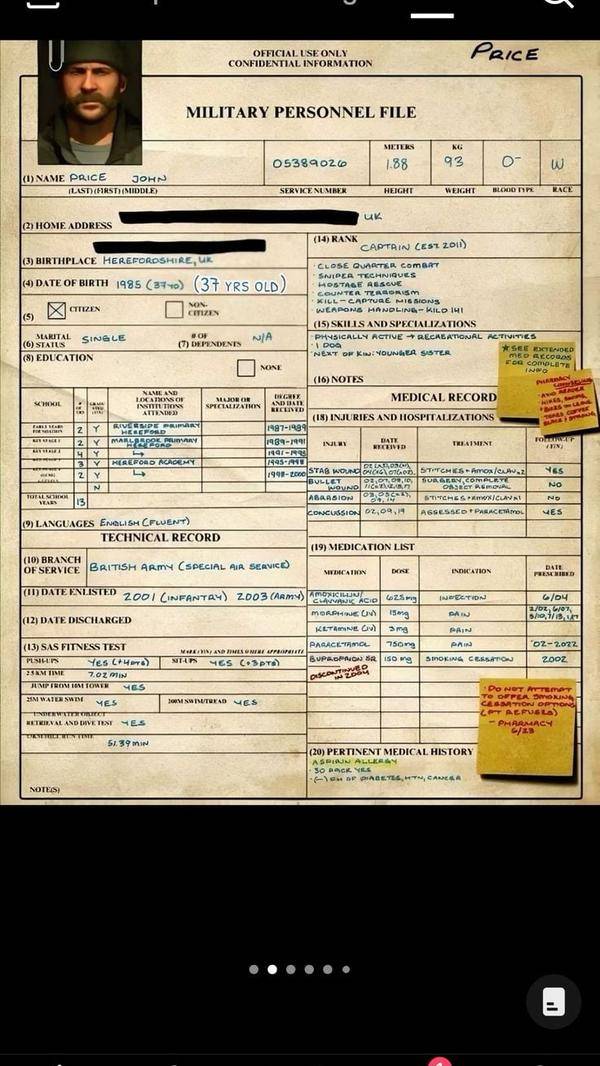 OFFICIAL USE ONLY
CONFIDENTIAL INFORMATION
PRICE
MILITARY PERSONNEL FILE
(1) NAME PRICE JOHN
(LAST) (FIRST) (MIDDLE)
05389026
SERVICE NUMBER
METERS
1.88
HEIGHT
KG
93
WEIGHT
O-
BLOOD TYPE
W
RACE
(2) HOME ADDRESS UK
(3) BIRTHPLACE HEREFORDSHIRE, UK
(4) DATE OF BIRTH 1985 (37 YRS OLD)
(5) CITIZEN
NON-CITIZEN
(6) MARITAL STATUS SINGLE
(7) # OF DEPENDENTS N/A
(8) EDUCATION
NONE
SCHOOL
NAME AND LOCATIONS OF INSTITUTIONS ATTENDED
MAJOR OR SPECIALIZATION
DEGREE AND DATE RECEIVED
2 Y RIVERSIDE PRIMARY HEREFORD 1987-1989
2 Y MARLBROOK PRIMARY HEREFORD 1989-1991
4 Y ↳ 1991-1995
3 Y HEREFORD ACADEMY 1995-1998
2 Y ↳ 1998-2000
N
TOTAL SCHOOL YEARS 13
(9) LANGUAGES ENGLISH (FLUENT)
TECHNICAL RECORD
(10) BRANCH OF SERVICE BRITISH ARMY (SPECIAL AIR SERVICE)
(11) DATE ENLISTED 2001 (INFANTRY) 2003 (ARMY)
(12) DATE DISCHARGED
(13) SAS FITNESS TEST
MARK (Y/N) AND TIMES WHERE APPROPRIATE
PUSH-UPS YES (+4pts)
SIT-UPS YES (+3pts)
2.5 KM TIME 7.02 MIN
JUMP FROM 10M TOWER YES
25M WATER SWIM YES
200M SWIM/TREAD YES
UNDERWATER OBJECT RETRIEVAL AND DIVE TEST YES
RUN TIME
51.39 MIN
NOTE(S)
(14) RANK
CAPTAIN (EST. 2011)
· CLOSE QUARTER COMBAT
· SNIPER TECHNIQUES
· HOSTAGE RESCUE
· COUNTER TERRORISM
· KILL-CAPTURE MISSIONS
· WEAPONS HANDLING-KILO 141
(15) SKILLS AND SPECIALIZATIONS
· PHYSICALLY ACTIVE → RECREATIONAL ACTIVITIES
· 1 DOG
· NEXT OF KIN: YOUNGER SISTER
(16) NOTES
★ SEE EXTENDED
MED RECORDS
FOR COMPLETE
INFO
PHARMACY
MEDICAL RECORD
(18) INJURIES AND HOSPITALIZATIONS
INJURY
DATE RECEIVED
TREATMENT
FOLLOW-UP (Y/N)
STAB WOUND STITCHES+AMOX/CLAV×2 YES
BULLET WOUND SURGERY, COMPLETE OBJECT REMOVAL NO
ABRASION STITCHES+AMOX/CLAV×1 NO
CONCUSSION 02, 09, 19 ASSESSED + PARACETAMOL YES
(19) MEDICATION LIST
MEDICATION
DOSE
INDICATION
DATE PRESCRIBED
AMOXICILLIN/ CLAVVANIC ACID 625mg INFECTION 6/04
MORPHINE (IV) 15mg PAIN
KETAMINE (IV) 3mg PAIN
PARACETAMOL 750mg PAIN '02-2022
BUPROPION SR 150 mg SMOKING CESSATION 2002
DISCONTINUED IN 2004
· DO NOT ATTEMPT
TO OFFER SMOKING
CESSATION OPTIONS
(PT REFUSES)
- PHARMACY
6/23
(20) PERTINENT MEDICAL HISTORY
· ASPIRIN ALLERGY
· 30 PACK YRS
· (-) FH OF DIABETES, HTN, CANCER